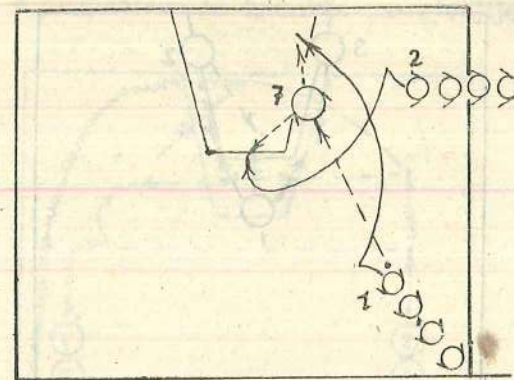 2
7
1